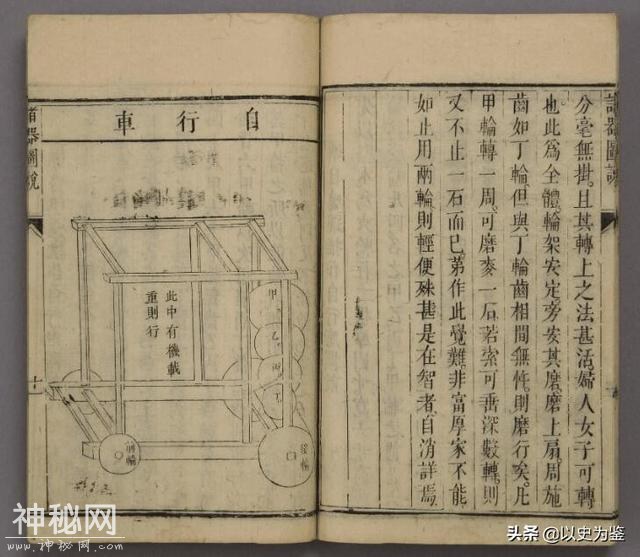 諸器圖說
分毫無掛。且其轉上之法甚活。婦人女子可轉
也此爲全體。輪架安定旁安其磨。磨上扇。周施
齒如丁輪。但與丁輪齒相間無忤。則磨行矣。凡
甲輪轉一周。可磨麥一石。若索可垂深數轉。則
又不止一石而已。第作此覺難。非富厚家不能
如止用兩輪則輕便殊甚。是在智者。自消詳焉。
自行車
此中有機載
重則行
甲
乙
丙
後輪
前輪
諸器圖說
十
神秘网
www.神秘网.com
头条 @以史为鉴